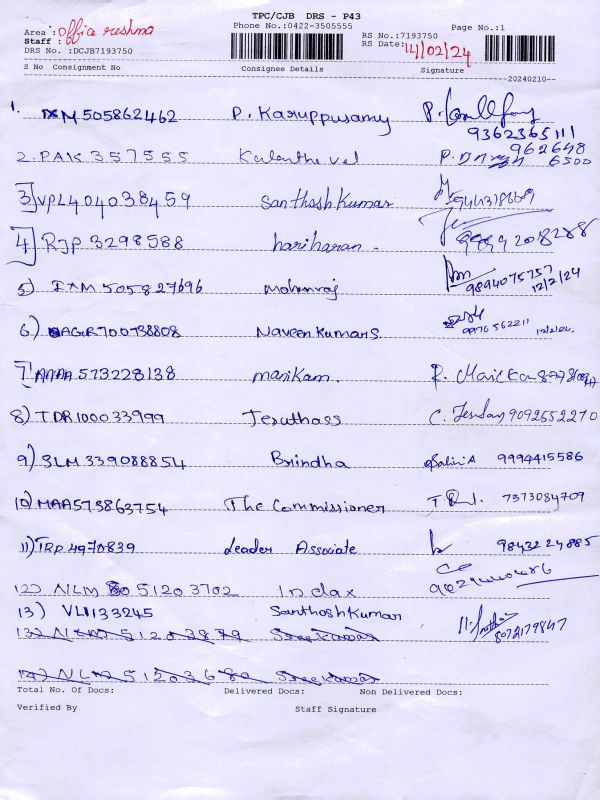 TPC/CJB DRS - P43
Phone No.:0422-3505555
Area : office reshma
Staff :
DRS No. :DCJB7193750
RS No.:7193750
RS Date: 14/02/24
Page No.:1
S No Consignment No Consignee Details Signature
20240210
1. IXM 505862462 P. Karuppusamy
9362365111
2. PAK 357555 Kulanthevel 962648 6500
3] VPL404038459 Santhosh Kumar
4] RJP 3298588 hariharan.
5) IXM 505827696 Mohanraj 9894075757
12/2/24
6) AGR700738808 Naveen Kumar S. 9976562211 12/2/24
7] MAA 573228138 manikam.
8) TDR100033999 Jeruthass 9092552270
9) SLM 339088854 Brindha 9994415586
10) MAA573863754 The Commissioner 7373084709
11) TRP 4970839 Leader Associate 9843224885
12) NLM 51203702 Indax
13) VL1133245 Santhosh Kumar 8072179847
Total No. Of Docs: Delivered Docs: Non Delivered Docs:
Verified By Staff Signature